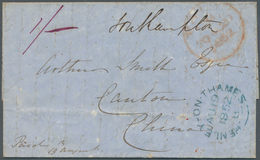 1/-
Southampton
Arthur Smith Esqre
Canton
China
Paid
HENLEY-ON-THAMES
AU 19
1852